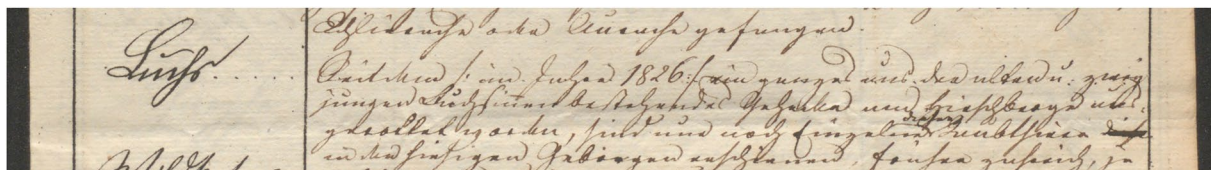 Schlierache oder Aurach gefangen.
Luchs.....
Seitdem /: im Jahre 1826 :/ ein ganzes aus den alten u. zwey
jungen Luchsinnen bestehendes Gehecke am Hirschberge aus-
gerottet worden, sind nur noch Einzelne dieser Raubthiere
in den hiesigen Gebirgen erschienen, früher zugleich, je